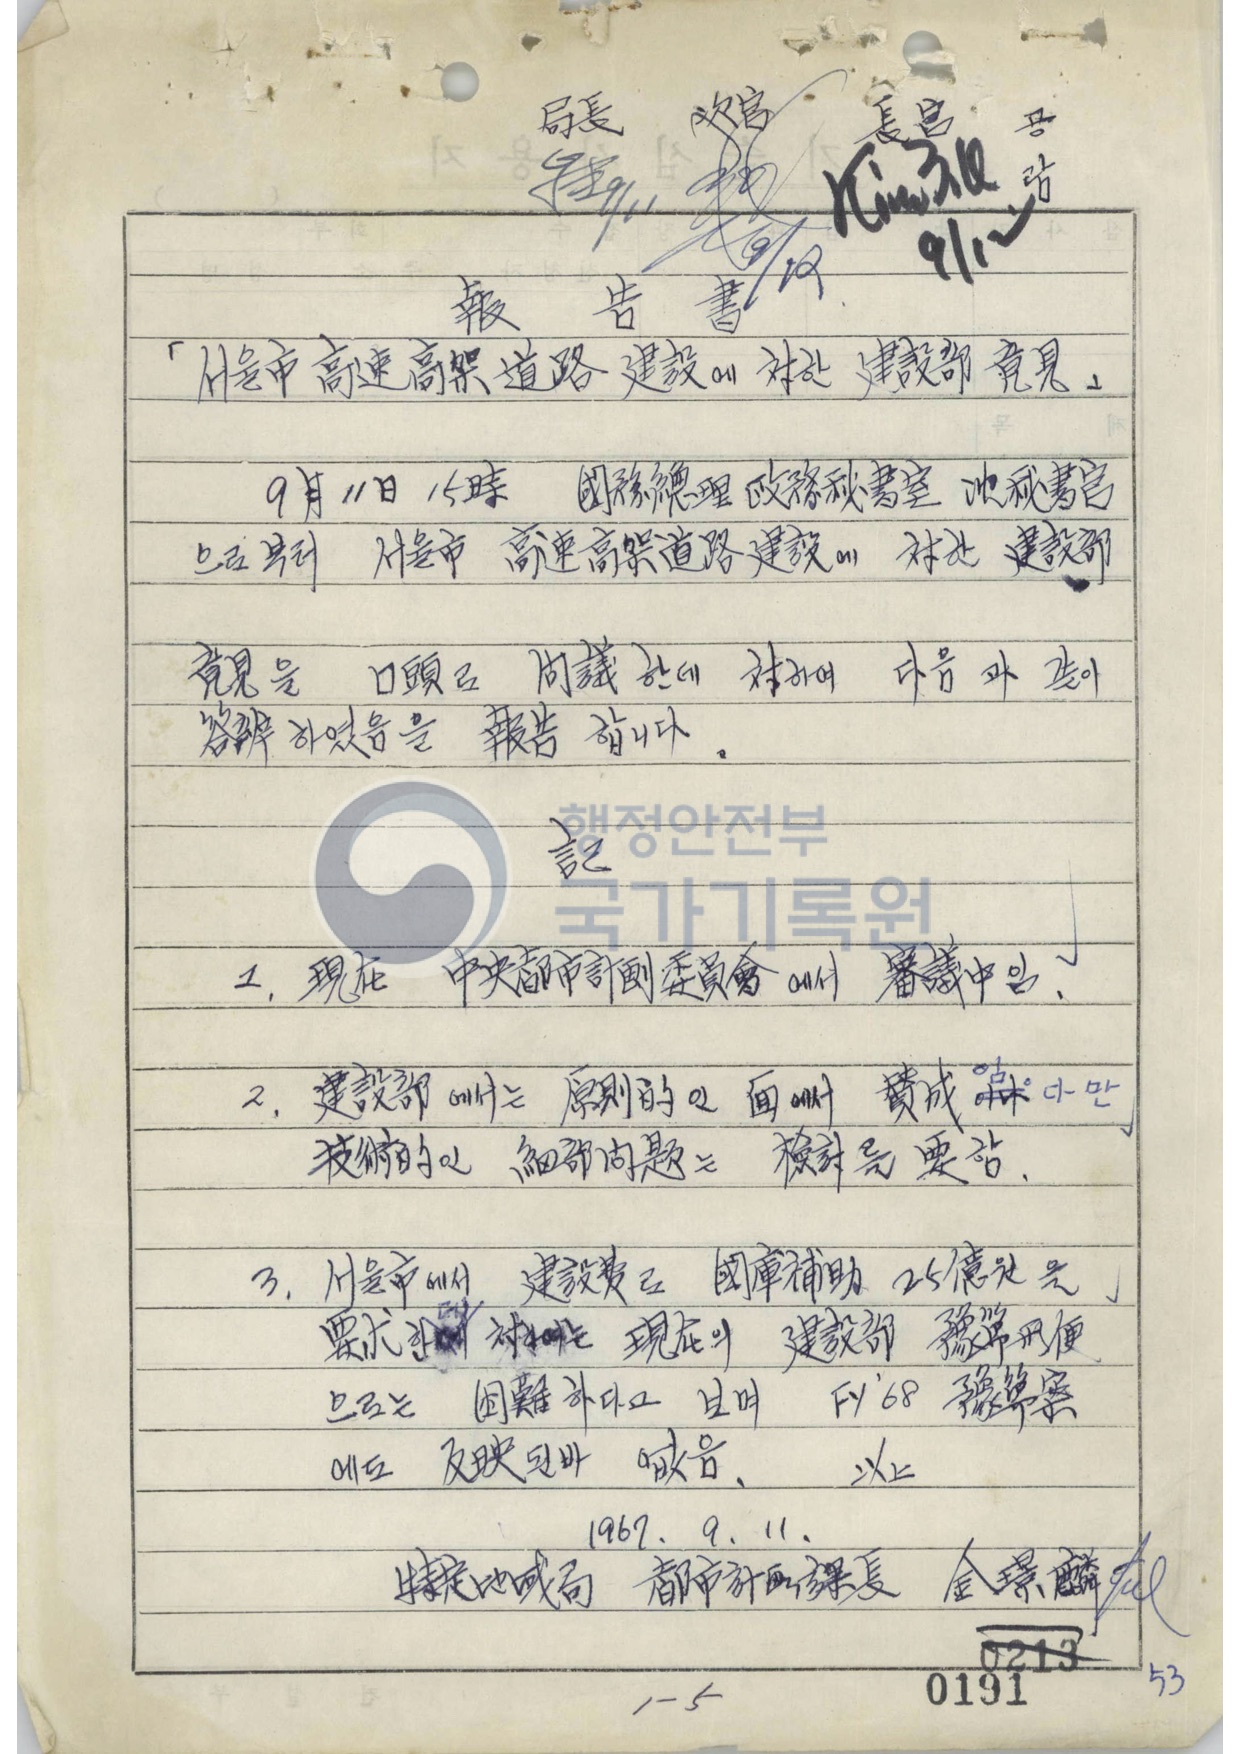 局長 次官 長官 공람
9/11 9/12 9/12
報告書
「서울市 高速高架道路 建設에 対한 建設部 意見」
9月 11日 15時 國務總理 政務秘書室 池秘書官
으로부터 서울市 高速高架道路建設에 対한 建設部
意見을 口頭로 問議한데 対하여 다음과 같이
答辯하였음을 報告합니다.
記
행정안전부
국가기록원
1. 現在 中央都市計劃委員會에서 審議中임.
2. 建設部에서는 原則的인 面에서 賛成임 다만
技術的인 細部問題는 檢討를 要함.
3. 서울市에서 建設費로 國庫補助 25億원을
要求한데 対하여는 現在의 建設部 豫算形便
으로는 困難하다고 보며 FY'68 豫算案
에도 反映된바 없음. 以上
1967. 9. 11.
特定地域局 都市計画課長 金璟麟
0213
0191
53
1-5